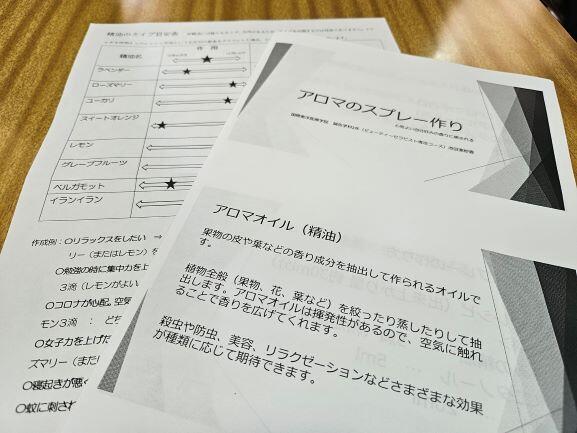 精油のタイプ目安表
精油名
作用
ラベンダー
ローズマリー
ユーカリ
スイートオレンジ
レモン
グレープフルーツ
ベルガモット
イランイラン
作成例：〇リラックスをしたい　⇒
リー（またはレモン）を
〇勉強の時に集中力を上
3滴（レモンがよい
〇コロナが心配。空気
モン3滴　：　ど
〇女子力を上げた
ズマリー（また
〇寝起きが悪く
〇蚊に刺され
アロマのスプレー作り
アロマオイル（精油）
果物の皮や葉などの香り成分を抽出して作られるオイルで
す。
植物全般（果物、花、葉など）を絞ったり蒸したりして抽
出します。アロマオイルは揮発性があるので、空気に触れ
ることで香りを広げてくれます。
殺虫や防虫、美容、リラクゼーションなどさまざまな効果
が種類に応じて期待できます。